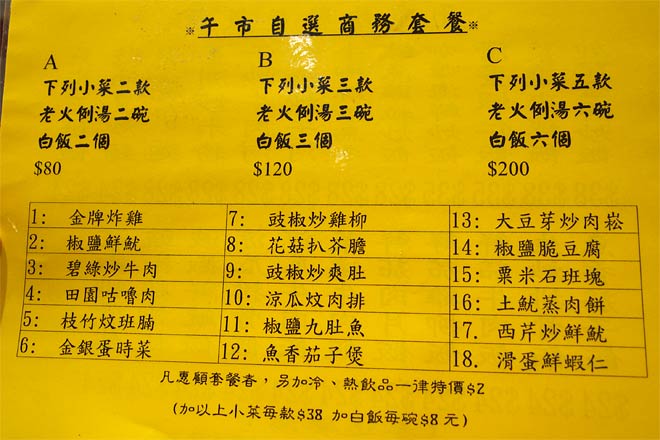 ※午市自選商務套餐※
A
下列小菜二款
老火例湯二碗
白飯二個
$80
B
下列小菜三款
老火例湯三碗
白飯三個
$120
C
下列小菜五款
老火例湯六碗
白飯六個
$200
1: 金牌炸雞
2: 椒鹽鮮魷
3: 碧綠炒牛肉
4: 田園咕嚕肉
5: 枝竹炆班腩
6: 金銀蛋時菜
7: 豉椒炒雞柳
8: 花菇扒芥膽
9: 豉椒炒爽肚
10: 涼瓜炆肉排
11: 椒鹽九肚魚
12: 魚香茄子煲
13: 大豆芽炒肉崧
14: 椒鹽脆豆腐
15: 粟米石班塊
16: 土魷蒸肉餅
17. 西芹炒鮮魷
18. 滑蛋鮮蝦仁
凡惠顧套餐者，另加冷、熱飲品一律特價$2
(加以上小菜每款$38 加白飯每碗$8 元)